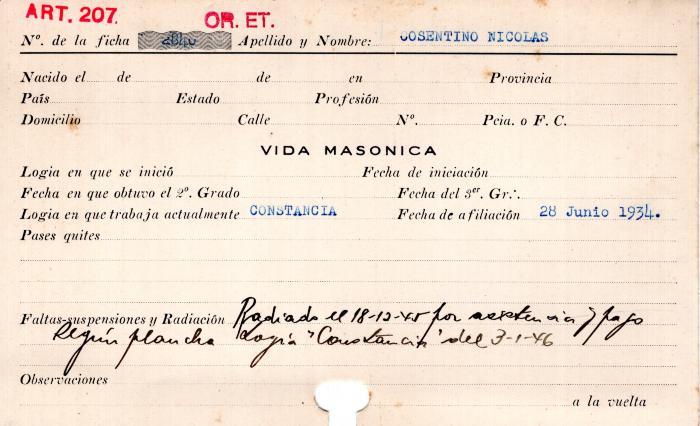 ART. 207.
OR. ET.
Nº. de la ficha 2840 Apellido y Nombre: COSENTINO NICOLAS
Nacido el de de en Provincia
País Estado Profesión
Domicilio Calle Nº. Pcia. o F. C.
VIDA MASONICA
Logia en que se inició Fecha de iniciación
Fecha en que obtuvo el 2º. Grado Fecha del 3er. Gr∴.
Logia en que trabaja actualmente CONSTANCIA Fecha de afiliación 28 Junio 1934.
Pases quites
Faltas-suspensiones y Radiación Radiado el 18-12-45 por asistencia y pago
según plancha Logia "Constancia" del 3-1-46
Observaciones
a la vuelta